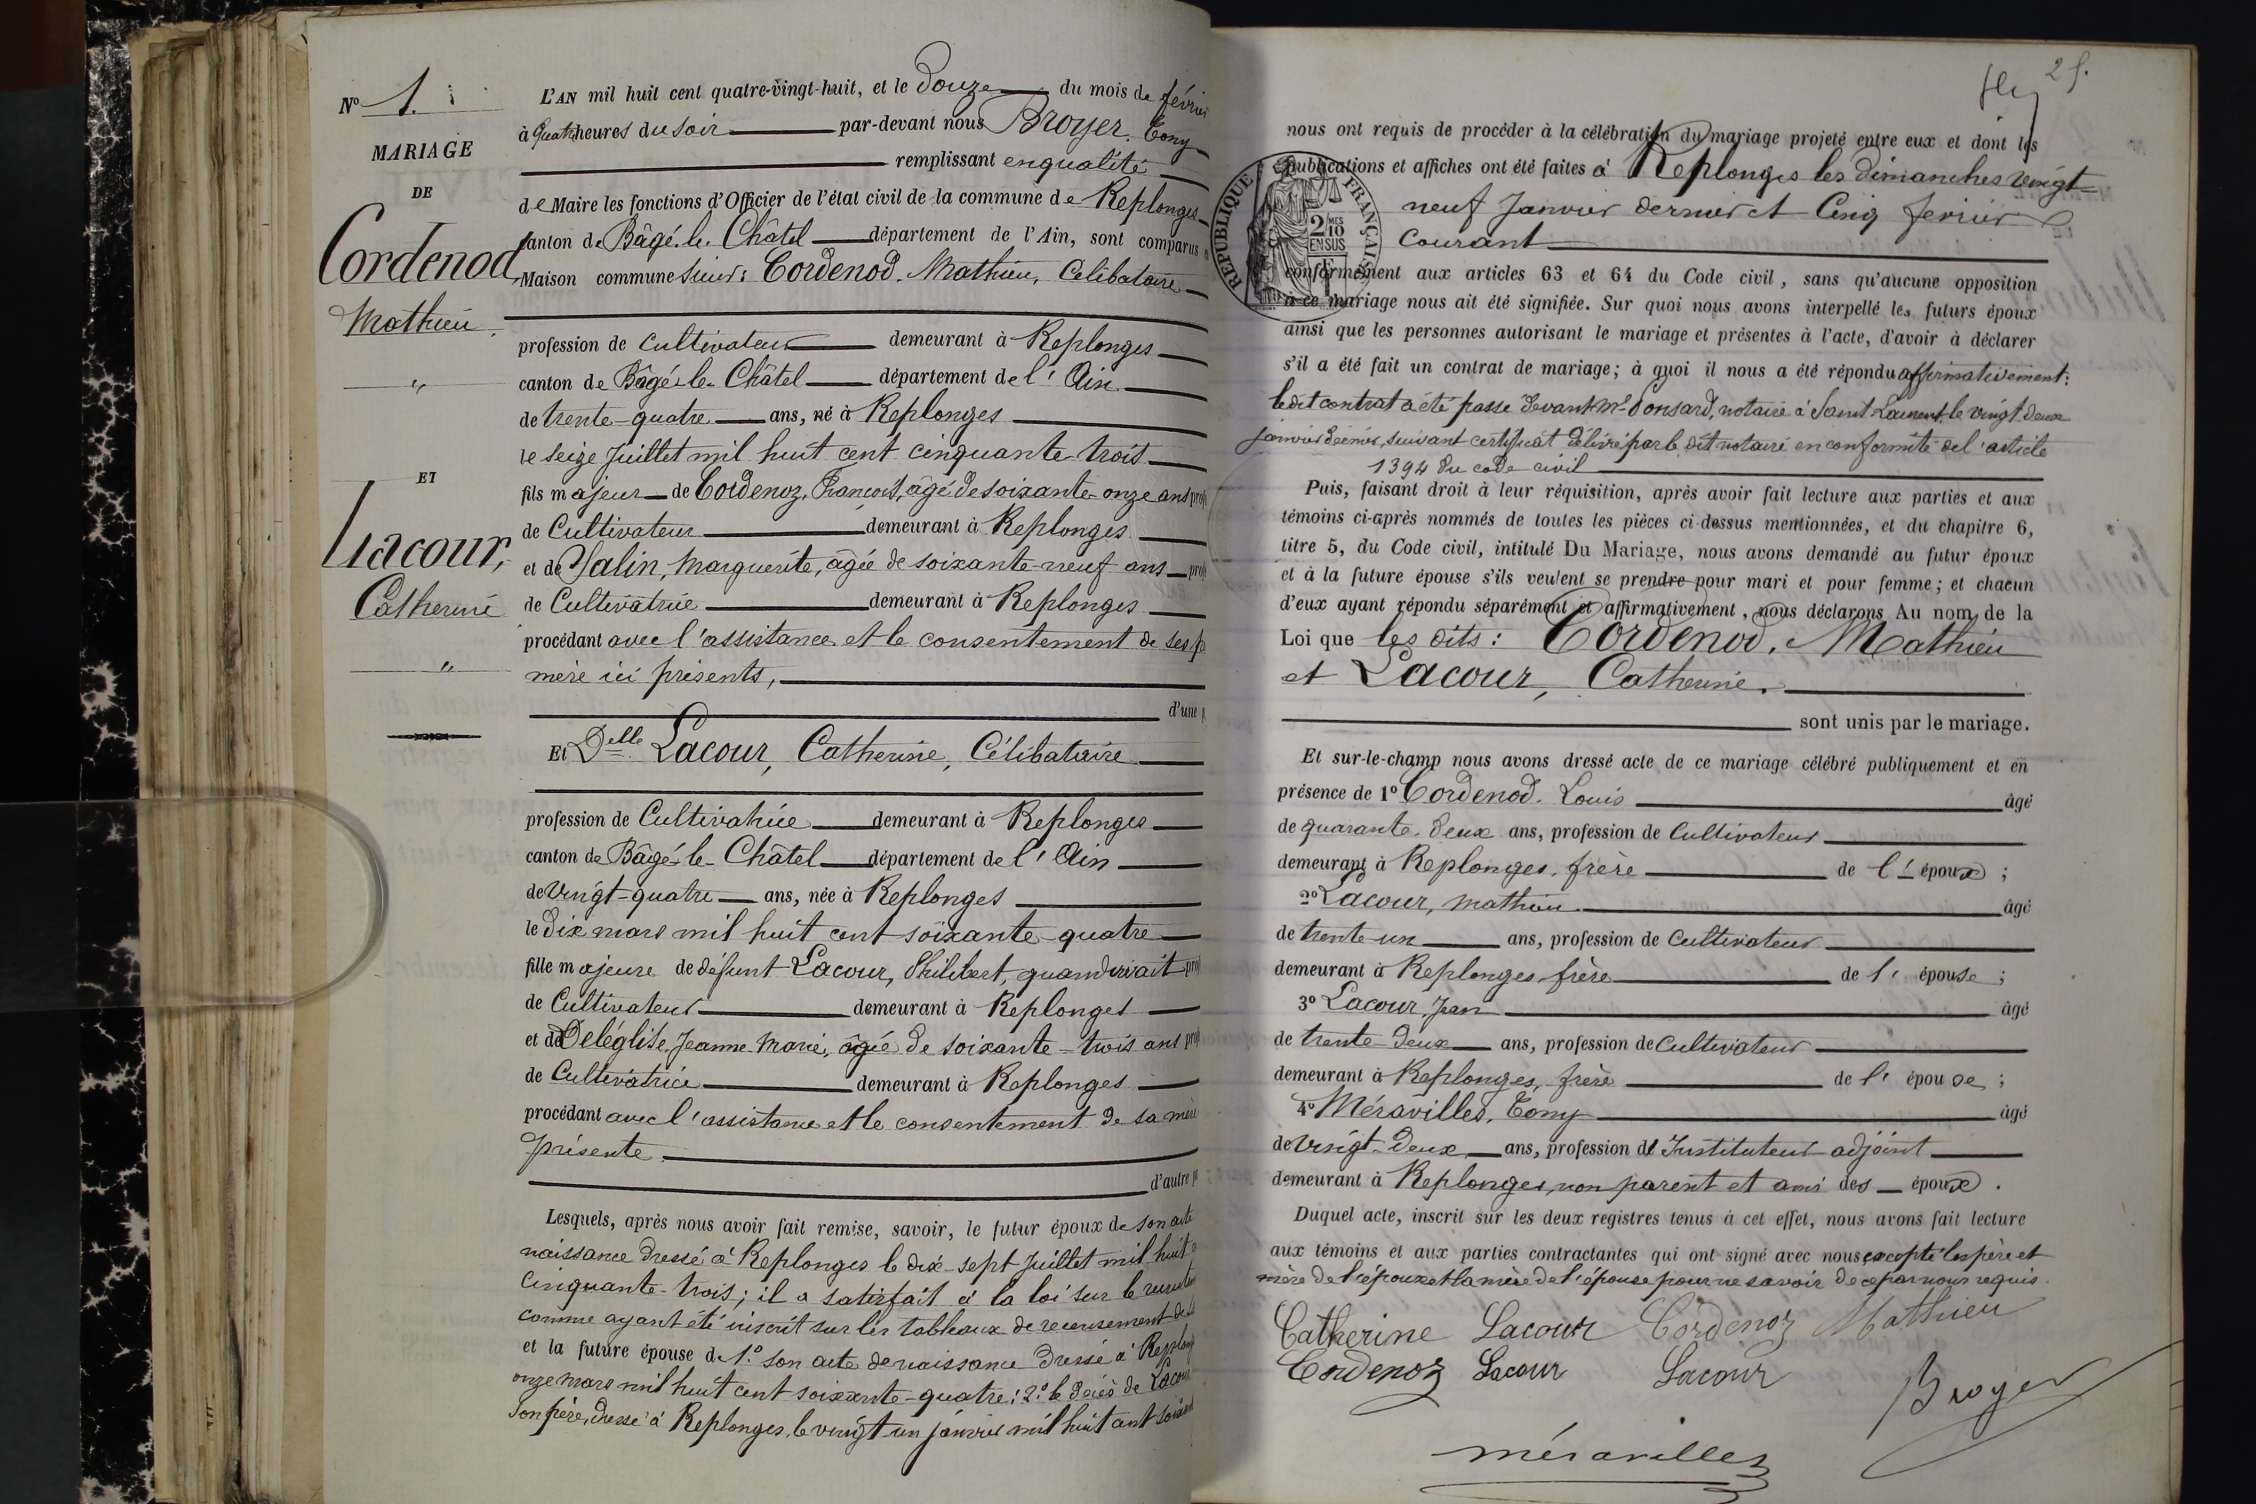 N° 1.
MARIAGE
DE
Cordenod,
Mathieu.
"
ET
Lacour,
Catherine
"
L'AN mil huit cent quatre-vingt-huit, et le Douze du mois de février
à Quatre heures du soir par-devant nous Broyer, Tony
remplissant en qualité
de Maire les fonctions d'Officier de l'état civil de la commune de Replonges
canton de Bâgé-le-Châtel département de l'Ain, sont comparus
Maison commune Sieur: Cordenod, Mathieu, Célibataire
profession de Cultivateur demeurant à Replonges
canton de Bâgé-le-Châtel département de l'Ain
de trente-quatre ans, né à Replonges
le seize Juillet mil huit cent cinquante-trois
fils majeur de Cordenoz, François, âgé de soixante-onze ans
de Cultivateur demeurant à Replonges
et de Salin, Marguerite, âgée de soixante-neuf ans
de Cultivatrice demeurant à Replonges
procédant avec l'assistance et le consentement de ses
mère ici présents,
d'une
Et Delle Lacour, Catherine, Célibataire
profession de Cultivatrice demeurant à Replonges
canton de Bâgé-le-Châtel département de l'Ain
de vingt-quatre ans, née à Replonges
le dix mars mil huit cent soixante-quatre
fille majeure de défunt Lacour, Philibert, quand vivait
de Cultivateur demeurant à Replonges
et de Deléglise, Jeanne-Marie, âgée de soixante-trois ans
de Cultivatrice demeurant à Replonges
procédant avec l'assistance et le consentement de sa mère
présente.
d'autre
Lesquels, après nous avoir fait remise, savoir, le futur époux de son acte
naissance dressé à Replonges le dix-sept Juillet mil huit
cinquante-trois; il a satisfait à la loi sur le
comme ayant été inscrit sur les tableaux de recensement de
et la future épouse de 1.° son acte de naissance dressé à
onze mars mil huit cent soixante-quatre; 2.° le décès de Lacour
son père, dressé à Replonges, le vingt-un janvier mil huit cent
25.
nous ont requis de procéder à la célébration du mariage projeté entre eux et dont les
publications et affiches ont été faites à Replonges les dimanches vingt-
neuf Janvier dernier et Cinq février
courant
RÉPUBLIQUE FRANÇAISE
2/10
EN SUS
conformément aux articles 63 et 64 du Code civil, sans qu'aucune opposition
à ce mariage nous ait été signifiée. Sur quoi nous avons interpellé les futurs époux
ainsi que les personnes autorisant le mariage et présentes à l'acte, d'avoir à déclarer
s'il a été fait un contrat de mariage; à quoi il nous a été répondu affirmativement:
le dit contrat a été passé devant Me Ponsard, notaire à Saint-Laurent, le vingt-deux
janvier dernier, suivant certificat délivré par le dit notaire en conformité de l'article
1394 du code civil
Puis, faisant droit à leur réquisition, après avoir fait lecture aux parties et aux
témoins ci-après nommés de toutes les pièces ci-dessus mentionnées, et du chapitre 6,
titre 5, du Code civil, intitulé Du Mariage, nous avons demandé au futur époux
et à la future épouse s'ils veulent se prendre pour mari et pour femme; et chacun
d'eux ayant répondu séparément et affirmativement, nous déclarons Au nom de la
Loi que les dits: Cordenod, Mathieu
et Lacour, Catherine.
sont unis par le mariage.
Et sur-le-champ nous avons dressé acte de ce mariage célébré publiquement et en
présence de 1° Cordenod, Louis âgé
de quarante-deux ans, profession de Cultivateur
demeurant à Replonges, frère de l'époux;
2° Lacour, Mathieu. âgé
de trente-un ans, profession de Cultivateur
demeurant à Replonges, frère de l'épouse;
3° Lacour, Jean âgé
de trente-deux ans, profession de Cultivateur
demeurant à Replonges, frère de l'épouse;
4° Méravilles, Tony âgé
de vingt-deux ans, profession d'Instituteur adjoint
demeurant à Replonges, non parent et ami des époux.
Duquel acte, inscrit sur les deux registres tenus à cet effet, nous avons fait lecture
aux témoins et aux parties contractantes qui ont signé avec nous excepté les père et
mère de l'époux et la mère de l'épouse pour ne savoir de ce par nous requis.
Catherine Lacour Cordenoz Mathieu
Cordenoz Lacour Lacour Broyer
Méravilles